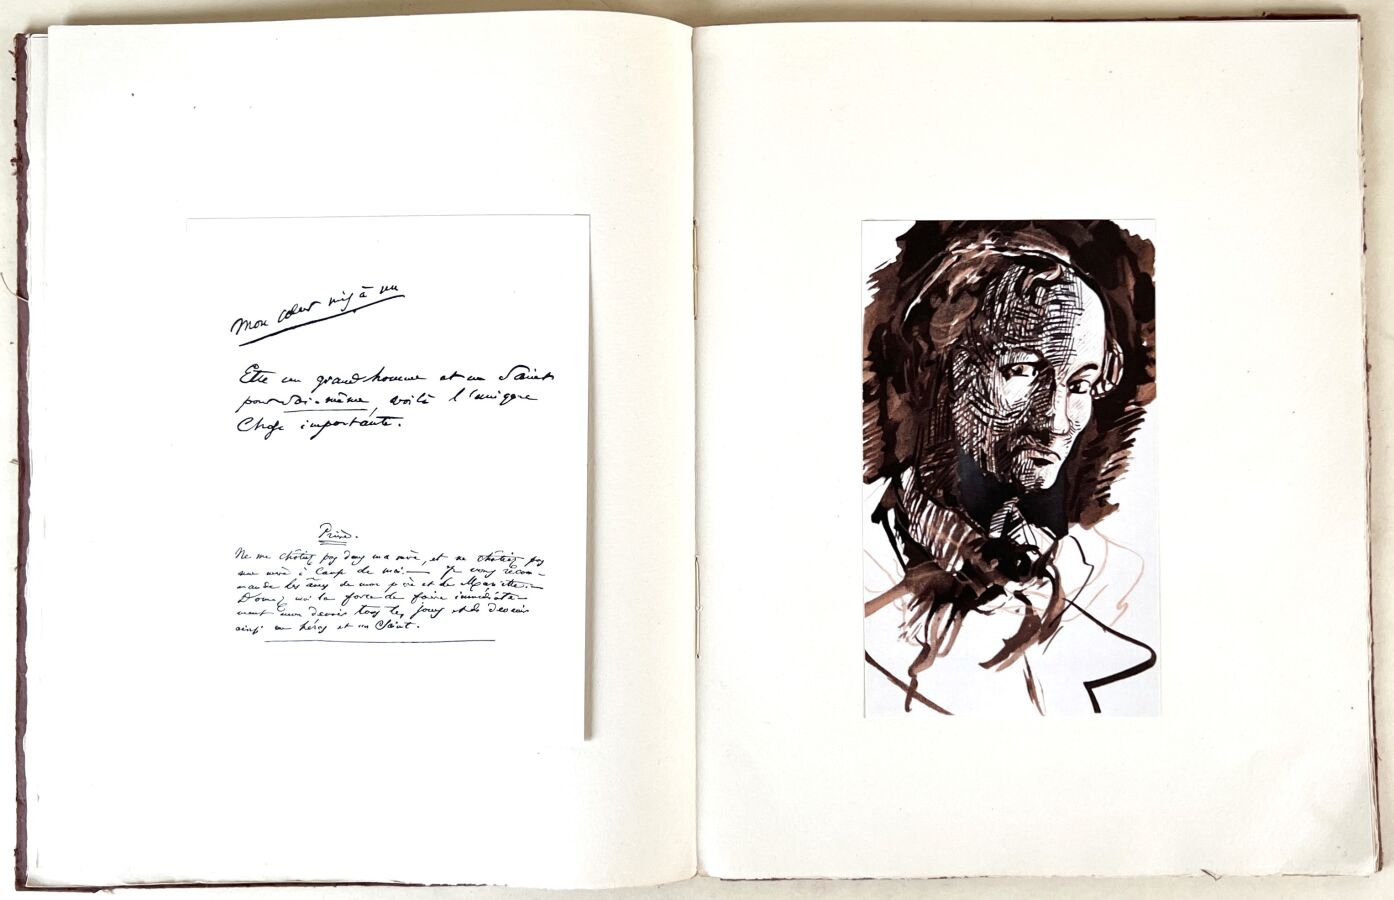 Mon cœur mis à nu
Être un grand homme et un Saint
pour soi-même, voilà l'unique
Chose importante.
Prière.
Ne me châtiez pas dans ma mère, et ne châtiez pas
ma mère à cause de moi. — Je vous recom-
mande les âmes de mon père et de Mariette. —
Donnez-moi la force de faire immédiate-
ment mon devoir tous les jours et de devenir
ainsi un héros et un Saint.